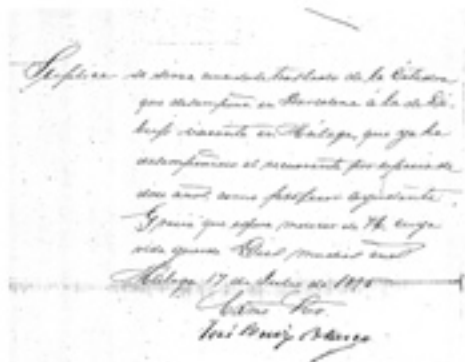 Suplica se sirva concederle traslado de la Cátedra
que desempeña en Barcelona á la de Di-
bujo vacante en Málaga, que ya ha
desempeñado el recurrente por espacio de
dos años como profesor ayudante.
Gracia que espera merecer de V.E. cuya
vida guarde Dios muchos años
Málaga 17 de Julio de 1895
Excmo Sor.
José Ruiz Blasco